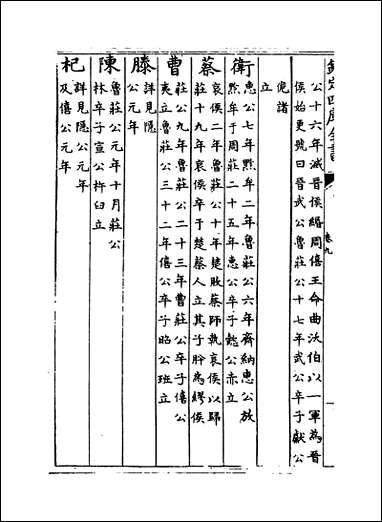 欽定四庫全書
卷九
公十六年滅晉侯緡周僖王命曲沃伯以一軍為晉
侯始更號曰晉武公魯莊公十七年武公卒子獻公
佹諸
立
衛
惠公七年黔牟二年魯莊公六年齊納惠公放
黔牟于周莊二十五年惠公卒子懿公赤立
蔡
哀侯二年魯莊公十年楚敗蔡師執哀侯以歸
莊十九年哀侯卒于楚蔡人立其子肸為繆侯
曹
莊公九年魯莊公二十三年曹莊公卒子僖公
夷立魯莊公三十二年僖公卒子昭公班立
滕
詳見隱
公元年
陳
魯莊公元年十月莊公
林卒子宣公杵臼立
杞
詳見隱公元年
及僖公元年